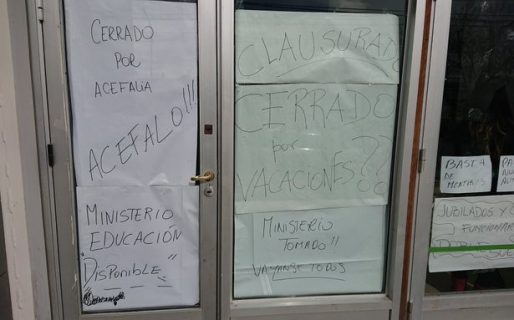 CERRADO
POR
ACEFALIA
ACEFALO!!!
MINISTERIO
EDUCACIÓN
"DISPONIBLE"
CLAUSURADO
CERRADO
por
VACACIONES??
MINISTERIO
TOMADO!!
VAYANSE TODOS
BASTA
DE
MENTIRAS
JUBILADOS Y